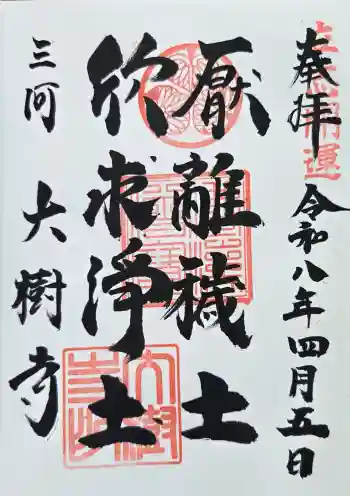 奉拝
令和八年四月五日
厭離穢土
欣求浄土
三河 大樹寺
大樹寺印